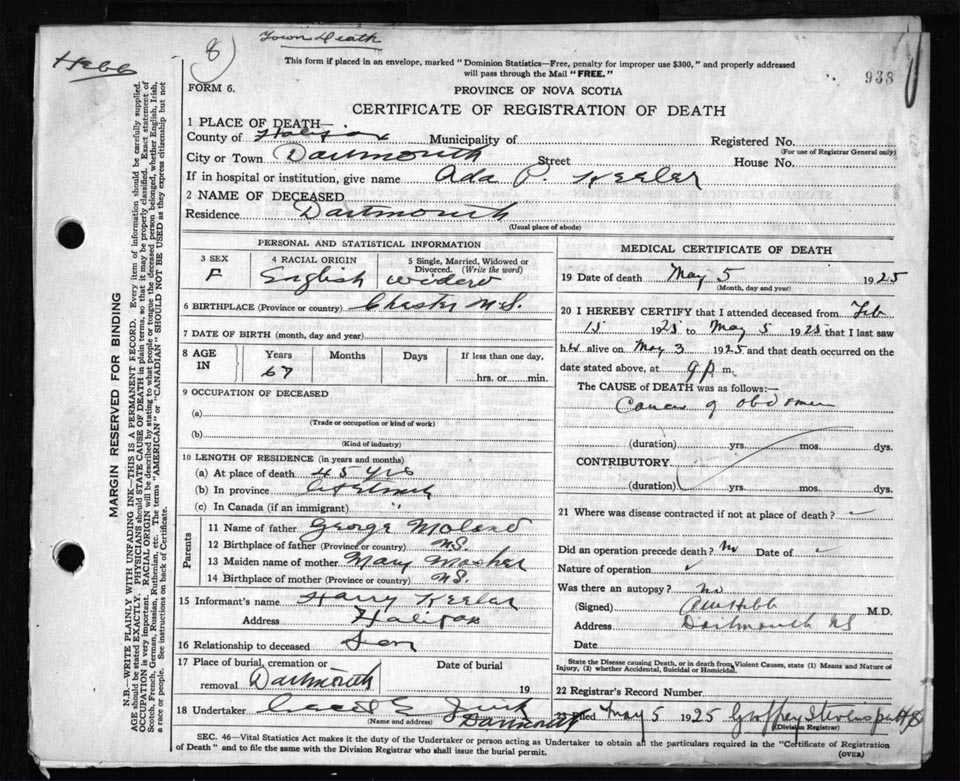 Town Death
8
Hebb
This form if placed in an envelope, marked "Dominion Statistics—Free, penalty for improper use $300," and properly addressed
will pass through the Mail "FREE."
938
FORM 6.
PROVINCE OF NOVA SCOTIA
CERTIFICATE OF REGISTRATION OF DEATH
1 PLACE OF DEATH—
County of Halifax Municipality of Registered No.
(For use of Registrar General only)
City or Town Dartmouth Street House No.
If in hospital or institution, give name Ada P. Keeler
2 NAME OF DECEASED
Residence Dartmouth
(Usual place of abode)
PERSONAL AND STATISTICAL INFORMATION
3 SEX
F
4 RACIAL ORIGIN
English
5 Single, Married, Widowed or
Divorced. (Write the word)
widow
6 BIRTHPLACE (Province or country) Chester N.S.
7 DATE OF BIRTH (month, day and year)
8 AGE
IN
Years Months Days If less than one day,
67
hrs. or min.
9 OCCUPATION OF DECEASED
(a)
(Trade or occupation or kind of work)
(b)
(Kind of industry)
10 LENGTH OF RESIDENCE (in years and months)
(a) At place of death 45 yrs
(b) In province
(c) In Canada (if an immigrant) "
Parents
11 Name of father George
12 Birthplace of father (Province or country) N.S.
13 Maiden name of mother Mary Mosher
14 Birthplace of mother (Province or country) N.S.
15 Informant's name Harry Keeler
Address Halifax
16 Relationship to deceased Son
17 Place of burial, cremation or
removal Dartmouth
Date of burial
19
18 Undertaker Cecil E. Zink
(Name and address) Dartmouth
MEDICAL CERTIFICATE OF DEATH
19 Date of death May 5 1925
(Month, day and year)
20 I HEREBY CERTIFY that I attended deceased from Feb
15 1925 to May 5 1925 that I last saw
her alive on May 3 1925 and that death occurred on the
date stated above, at 9 p m.
The CAUSE OF DEATH was as follows:—
Cancer of abdomen
(duration) yrs. mos. dys.
CONTRIBUTORY
(duration) yrs. mos. dys.
21 Where was disease contracted if not at place of death?
Did an operation precede death? No Date of
Nature of operation
Was there an autopsy? no
(Signed) Hebb M.D.
Address Dartmouth NS
Date
State the Disease causing Death, or in death from Violent Causes, state (1) Means and Nature of
Injury, (2) whether Accidental, Suicidal or Homicidal.
22 Registrar's Record Number
23 Filed May 5 1925 Stevens
(Division Registrar)
SEC. 46—Vital Statistics Act makes it the duty of the Undertaker or person acting as Undertaker to obtain all the particulars required in the "Certificate of Registration
of Death" and to file the same with the Division Registrar who shall issue the burial permit.
(OVER)
MARGIN RESERVED FOR BINDING
N.B.—WRITE PLAINLY WITH UNFADING INK—THIS IS A PERMANENT RECORD. Every item of information should be carefully supplied.
AGE should be stated EXACTLY. PHYSICIANS should STATE CAUSE OF DEATH in plain terms, so that it may be properly classified. Exact statement of
OCCUPATION is very important. RACIAL ORIGIN will be described by stating to what people or tongue the deceased person belonged, whether English, Irish,
Scotch, French, German, Russian, Ruthenian, etc. The terms "AMERICAN" or "CANADIAN" SHOULD NOT BE USED as they express citizenship but not
a race or people. See instructions on back of Certificate.